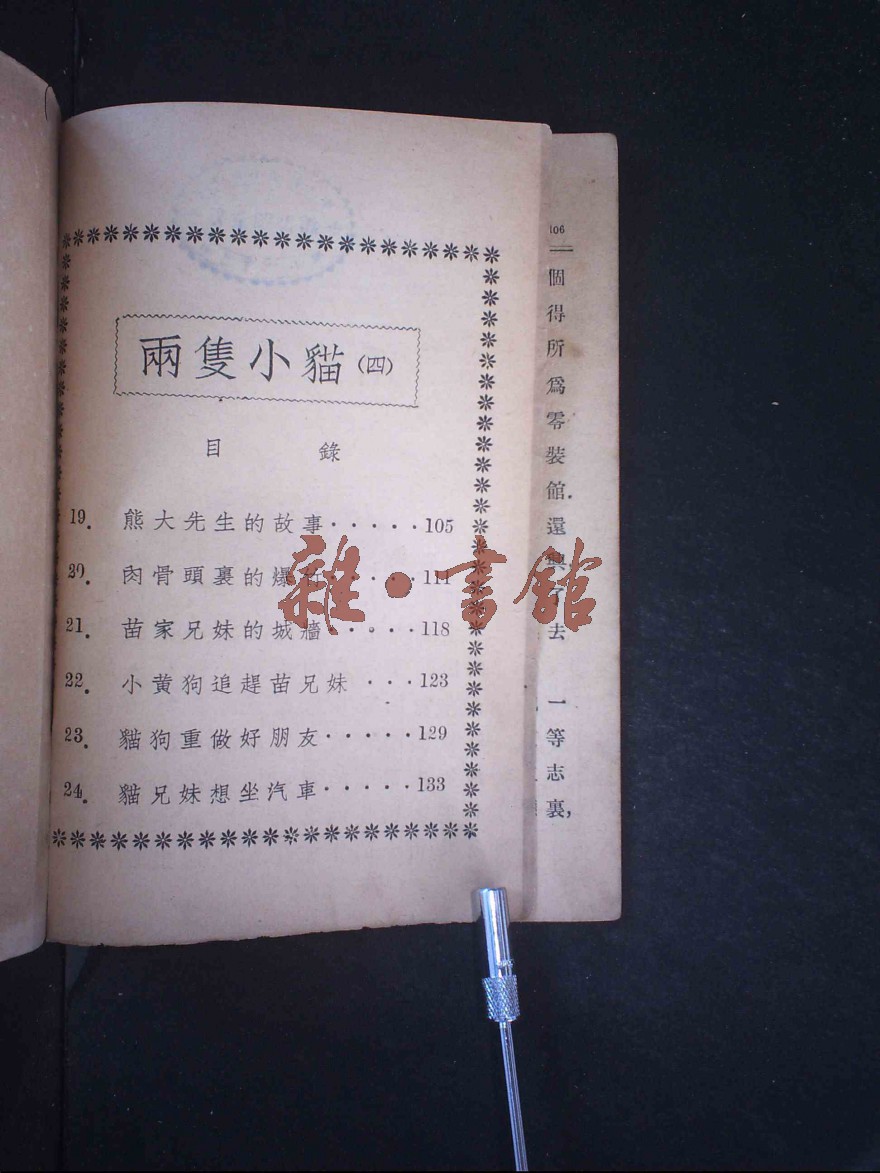 兩隻小貓(四)
目 錄
19. 熊大先生的故事·····105
20. 肉骨頭裏的爆竹·····111
21. 苗家兄妹的城牆·····118
22. 小黃狗追趕苗兄妹···123
23. 貓狗重做好朋友·····129
24. 貓兄妹想坐汽車·····133
106
個得所爲零裝館.還興了去 一等志裏,
雜·書館